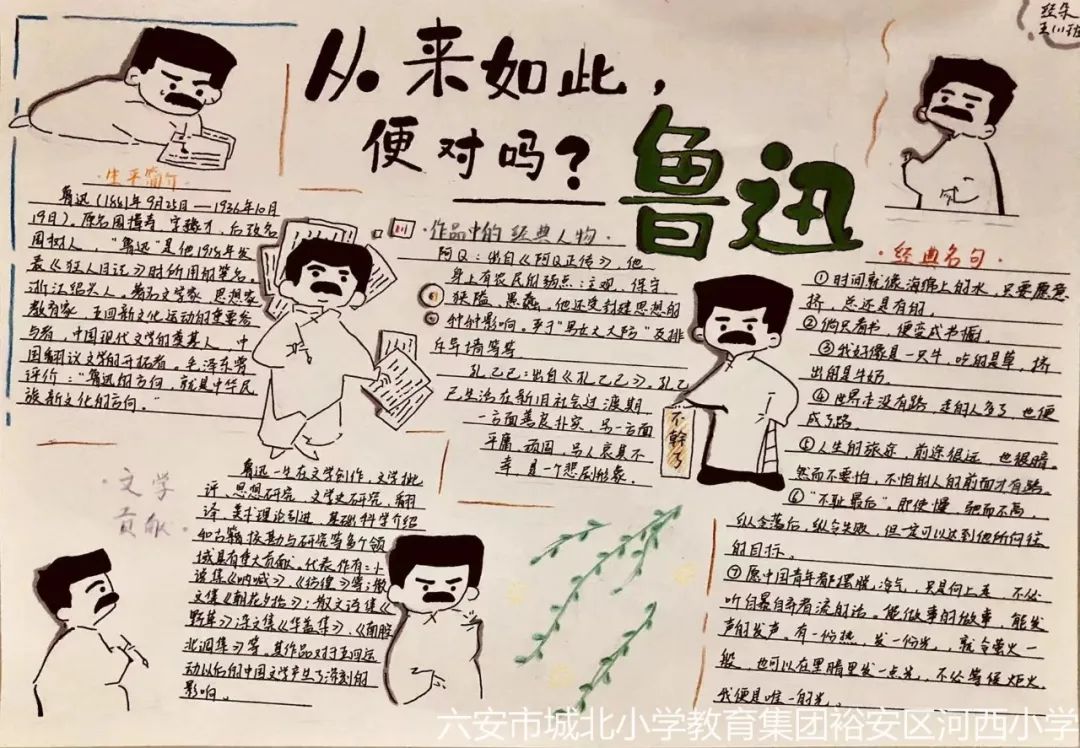 从来如此，
便对吗？鲁迅
生平简介
鲁迅(1881年9月25日——1936年10月
19日)。原名周樟寿，字豫才，后改名
周树人，“鲁迅”是他1918年发
表《狂人日记》时所用的笔名。
浙江绍兴人。著名文学家、思想家
教育家，五四新文化运动的重要参
与者，中国现代文学的奠基人，中
国翻译文学的开拓者。毛泽东曾
评价：“鲁迅的方向，就是中华民
族新文化的方向。”
作品中的经典人物
阿Q：出自《阿Q正传》，他
身上有农民的弱点：主观，保守
狭隘，愚蠢。他还受封建思想的
种种影响。关于“男女大大防”及排
斥异情等等
孔乙己：出自《孔乙己》。孔乙
己生活在新旧社会过渡期
一方面善良朴实，另一方面
平庸，顽固，另人哀其不
幸，是一个悲剧形象。
不幹了
经典名句
①时间就像海绵上的水，只要愿意
挤，总还是有的。
②倘只看书，便变成书橱。
③我好像是一只牛，吃的是草，挤
出的是牛奶。
④世界本没有路，走的人多了，也便
成了路。
⑤人生的旅途，前途很远，也很暗。
然而不要怕，不怕的人的前面才有路。
⑥“不耻最后”。即使慢，驰而不息，
纵令落后，纵令失败，但一定可以达到他所向往
的目标。
⑦愿中国青年都摆脱冷气，只是向上走，不必
听自暴自弃者流的话。能做事的做事，能发
声的发声，有一份热，发一份光，就令萤火一
般，也可以在黑暗里发一点光，不必等候炬火。
我便是唯一的光。
文学
贡献
鲁迅一生在文学创作，文学批
评，思想研究，文学史研究，翻
译，美术理论引进，基础科学介绍
和古籍校勘与研究等多个领
域具有重大贡献。代表作有：小
说集《呐喊》、《彷徨》等；散
文集《朝花夕拾》；散文诗集《
野草》；杂文集《华盖集》、《南腔
北调集》等，其作品对于五四运
动以后的中国文学产生了深刻的
影响。
六安市城北小学教育集团裕安区河西小学